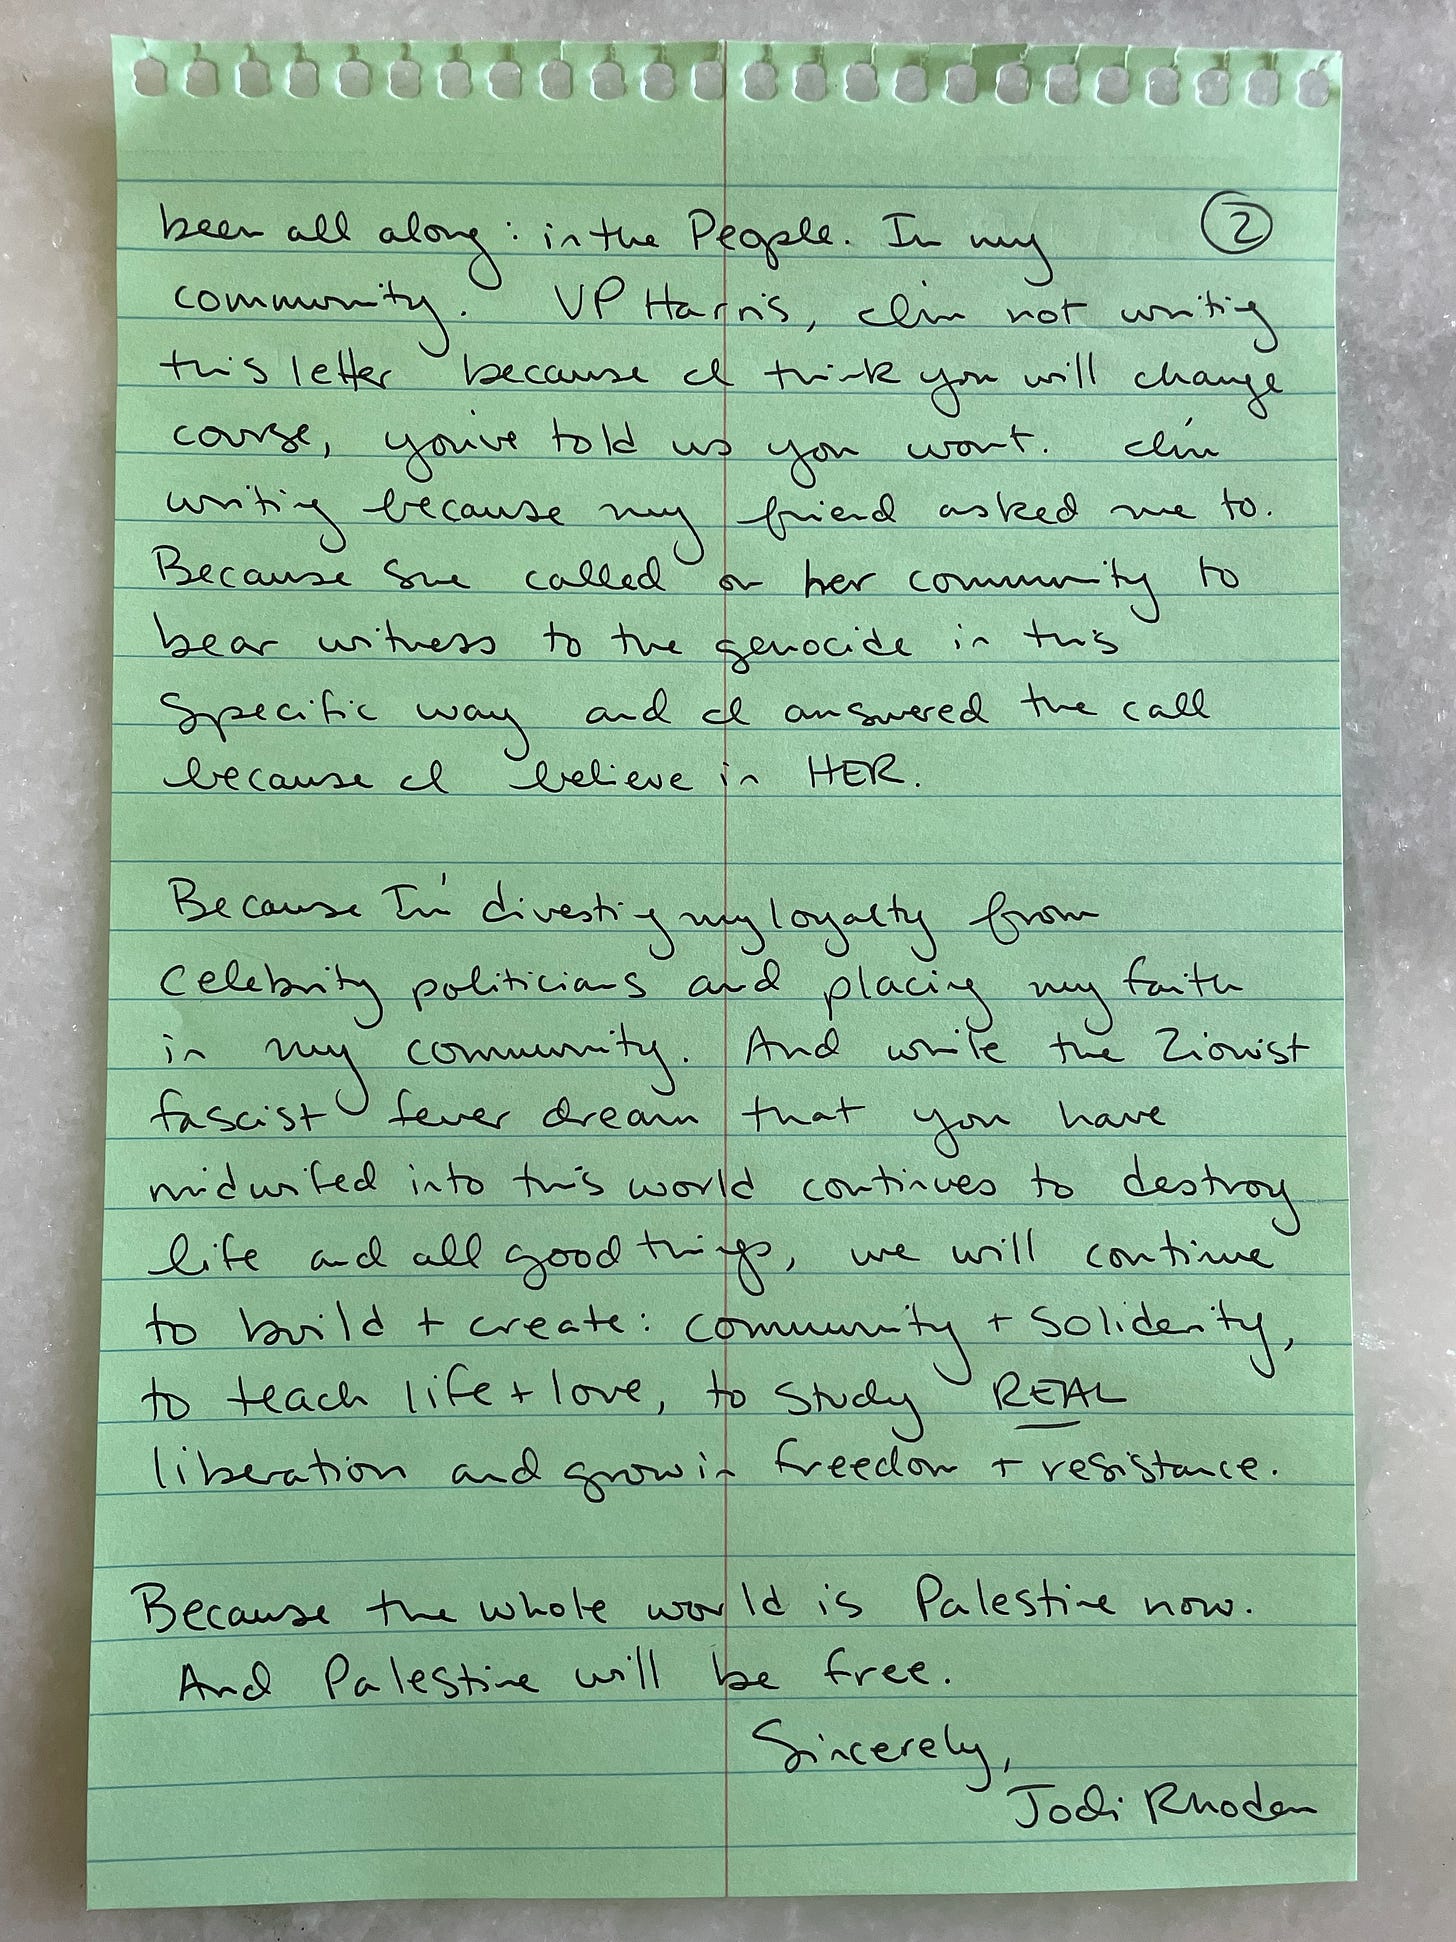 been all along: in the People. In my ②
community. VP Harris, I'm not writing
this letter because I think you will change
course, you've told us you wont. I'm
writing because my friend asked me to.
Because she called on her community to
bear witness to the genocide in this
specific way and I answered the call
because I believe in HER.
Because I'm divesting my loyalty from
celebrity politicians and placing my faith
in my community. And while the Zionist
fascist fever dream that you have
midwifed into this world continues to destroy
life and all good things, we will continue
to build + create: community + soliderity,
to teach life + love, to study REAL
liberation and grow in freedom + resistance.
Because the whole world is Palestine now.
And Palestine will be free.
Sincerely,
Jodi Rhoden